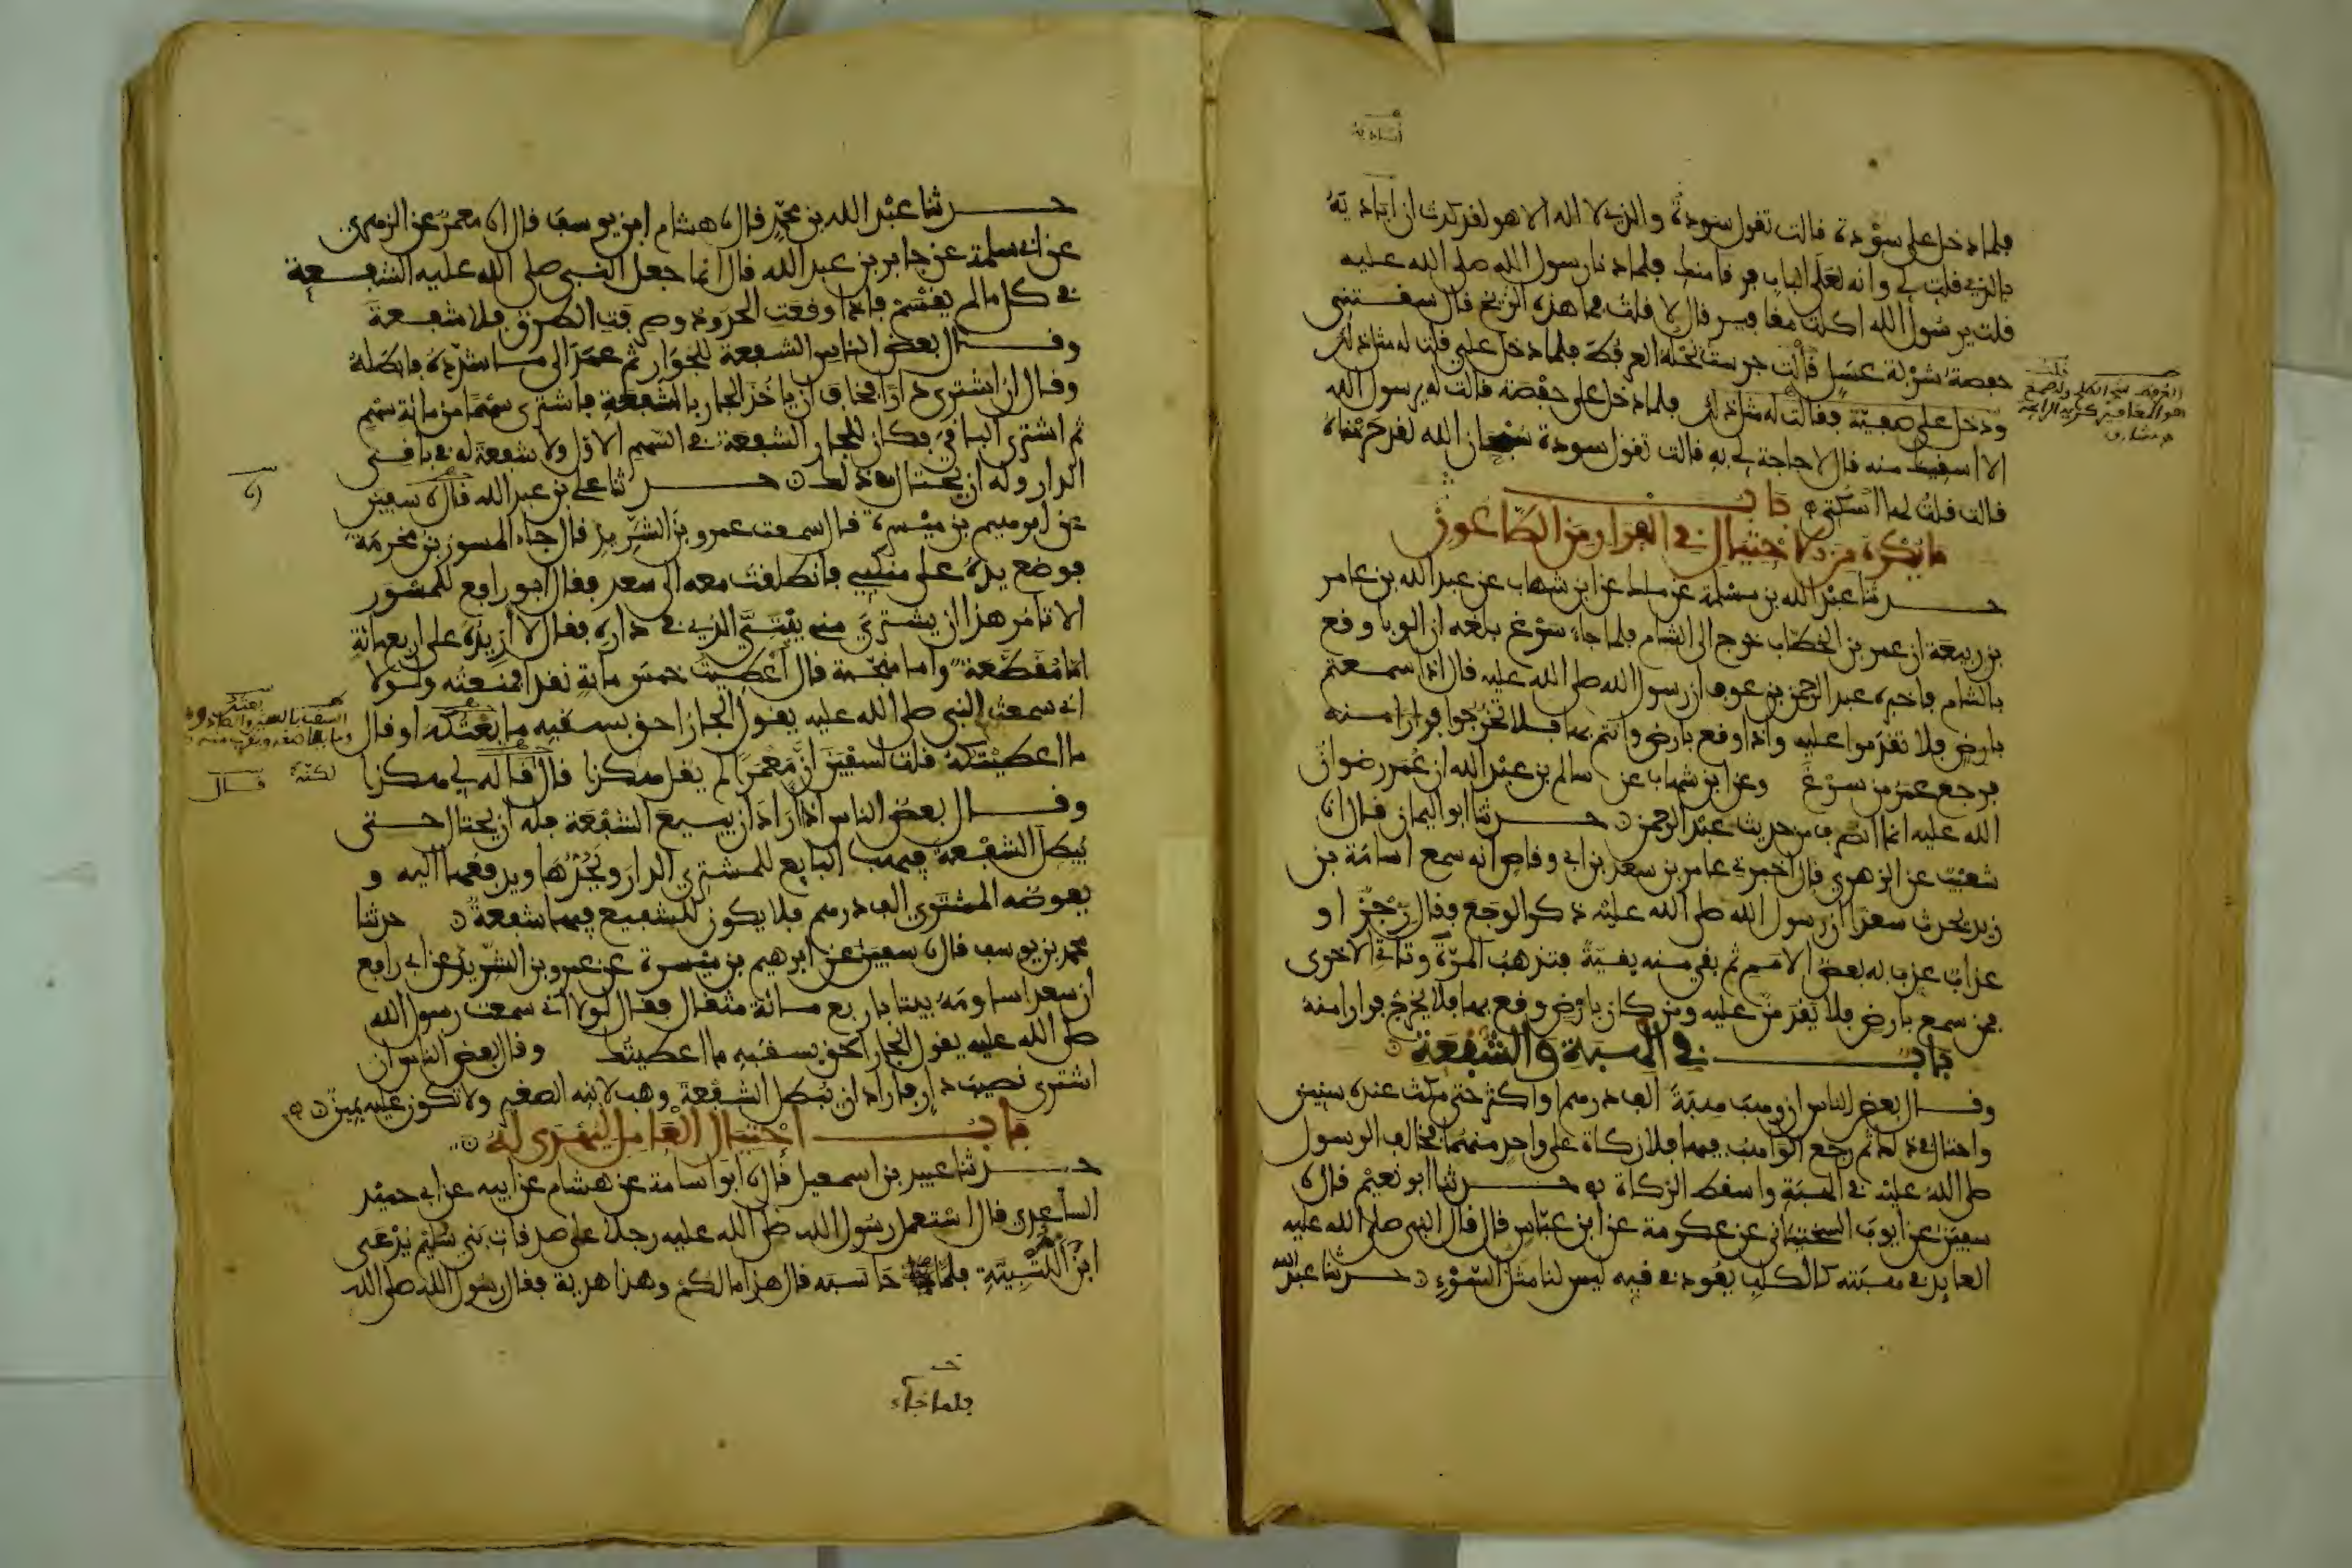 فلما دخل على سودة قالت تقول سودة والذي لا اله الا هو لقد كدت ان اباديه
بالذي قلت لي وانه لعلى الباب فرقا منك فلما دنا رسول الله صلى الله عليه
قلت يرسول الله اكلت مغافير قال لا قلت فما هذه الريح قال سقتني
حفصة شربة عسل قالت جرست نحله العرفط فلما دخل علي قلت له مثل ذلك
ودخل على صفية فقالت له مثل ذلك فلما دخل على حفصة قالت له يرسول الله
الا اسقيك منه قال لا حاجة لي به قالت تقول سودة سبحان الله لقد حرمناه
قالت قلت لها اسكتي باب
ما يكره من الاحتيال في الفرار من الطاعون
حدثنا عبد الله بن مسلمة عن ملك عن ابن شهاب عن عبد الله بن عامر
بن ربيعة ان عمر بن الخطاب خرج الى الشام فلما جاء سرغ بلغه ان الوبا وقع
بالشام فاخبره عبد الرحمن بن عوف ان رسول الله صلى الله عليه قال اذا سمعتم
بارض فلا تقدموا عليه واذا وقع بارض وانتم بها فلا تخرجوا فرارا منه
فرجع عمر من سرغ وعن ابن شهاب عن سالم بن عبد الله ان عمر رضوان
الله عليه انما انصرف من حديث عبد الرحمن حدثنا ابو اليمان قال انا
شعيب عن الزهري قال اخبرني عامر بن سعد بن ابي وقاص انه سمع اسامة بن
زيد يحدث سعدا ان رسول الله صلى الله عليه ذكر الوجع فقال رجز او
عذاب عذب به بعض الامم ثم بقي منه بقية فتذهب المرة وتاتي الاخرى
فمن سمع بارض فلا يقدمن عليه ومن كان بارض وقع بها فلا يخرج فرارا منه
باب في الهبة والشفعة
وقال بعض الناس ان وهب هبة الف درهم او اكثر حتى مكث عنده سنين
واحتال في ذلك ثم رجع الواهب فيها فلا زكاة على واحد منهما فخالف الرسول
صلى الله عليه في الهبة واسقط الزكاة حدثنا ابو نعيم قال نا
سفين عن ايوب السختياني عن عكرمة عن ابن عباس قال قال النبي صلى الله عليه
العايد في هبته كالكلب يعود في قيه ليس لنا مثل السوء حدثنا عبد الله
حدثنا عبد الله بن محمد قال نا هشام ابن يوسف قال انا معمر عن الزهري
عن ابي سلمة عن جابر بن عبد الله قال انما جعل النبي صلى الله عليه الشفعة
في كل ما لم يقسم فاذا وقعت الحدود وصرفت الطرق فلا شفعة
وقال بعض الناس الشفعة للجوار ثم عمد الى ما شدده فابطله
وقال ان اشترى دارا فخاف ان ياخذ الجار بالشفعة فاشترى سهما من مائة سهم
ثم اشترى الباقي فكان للجار الشفعة في السهم الاول ولا شفعة له في باقي
الدار وله ان يحتال في ذلك حدثنا علي بن عبد الله قال نا سفين
عن ابرهيم بن ميسرة قال سمعت عمرو بن الشريد قال جاء المسور بن مخرمة
فوضع يده على منكبي فانطلقت معه الى سعد فقال ابو رافع للمسور
الا تامر هذا ان يشتري مني بيتي الذي في داره فقال لا ازيده على اربعمائة
اما مقطعة واما منجمة قال اعطيت خمس مائة نقدا فمنعته ولولا
اني سمعت النبي صلى الله عليه يقول الجار احق بسقبه ما بعتكه او قال
ما اعطيتكه قلت لسفين ان معمرا لم يقل هكذا قال لكنه قاله لي هكذا
وقال بعض الناس اذا اراد ان يبيع الشفعة فله ان يحتال حتى
يبطل الشفعة فيهب البايع للمشتري الدار ويحدها ويدفعها اليه و
يعوضه المشتري الف درهم فلا يكون للشفيع فيها شفعة حدثنا
محمد بن يوسف قال نا سفين عن ابرهيم بن ميسرة عن عمرو بن الشريد عن ابي رافع
ان سعدا ساومه بيتا باربع مائة مثقال فقال لولا اني سمعت رسول الله
صلى الله عليه يقول الجار احق بسقبه ما اعطيتك وقال بعض الناس ان
اشترى نصيب دار فاراد ان يبطل الشفعة وهب لابنه الصغير ولا تكون عليه يمين
باب احتيال العامل ليهدى له
حدثنا عبيد بن اسمعيل قال نا ابو اسامة عن هشام عن ابيه عن ابي حميد
الساعدي قال استعمل رسول الله صلى الله عليه رجلا على صدقات بني سليم يدعى
ابن اللتبية فلما حاسبه قال هذا مالكم وهذا هدية فقال رسول الله صلى الله
فلما جاء